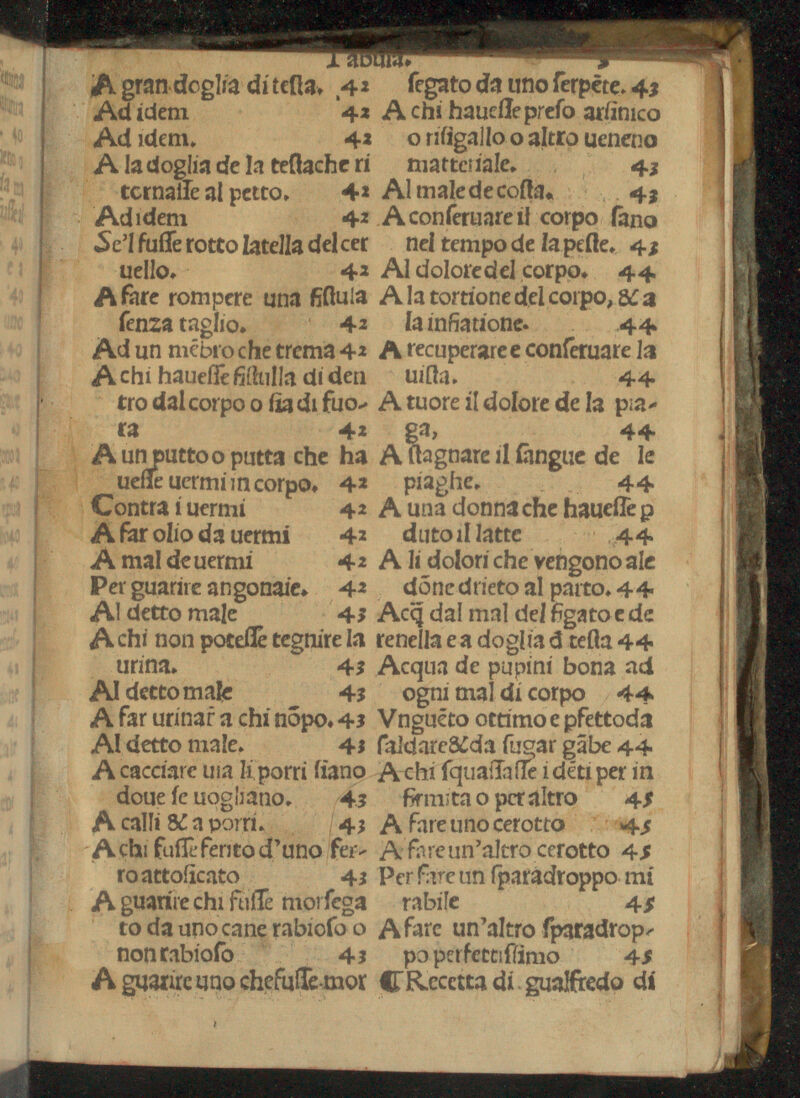 Tabula.
A gran doglia di testa. 42
Ad idem 42
Ad idem. 42
A la doglia de la testa che ri
tornasse al petto. 42
Ad idem 42
Se'l fusse rotto la tella del cer
uello. 42
A fare rompere una fistula
senza taglio. 42
Ad un mēbro che trema 42
A chi hauesse fistulla di den
tro dal corpo o sia di fuo-
ra 42
A un putto o putta che ha
uesse uermi in corpo. 42
Contra i uermi 42
A far olio da uermi 42
A mal de uermi 42
Per guarire angonaie. 42
Al detto male 43
A chi non potesse tegnire la
urina. 43
Al detto male 43
A far urinar a chi nō po. 43
Al detto male. 43
A cacciare uia li porri siano
doue se uogliano. 43
A calli & a porri. 43
A chi fusse ferito d'uno fer-
ro attosicato 43
A guarire chi fusse morsega
to da uno cane rabioso o
non rabioso 43
A guarire uno che fusse mor
segato da uno serpēte. 43
A chi hauesse preso arsinico
o risigallo o altro ueneno
matteriale. 43
Al male de costa. 43
A conseruare il corpo sano
nel tempo de la peste. 43
Al dolore del corpo. 44
A la tortione del corpo, & a
la infiatione. 44
A recuperare e conseruare la
uista. 44
A tuore il dolore de la pia-
ga, 44
A stagnare il sangue de le
piaghe. 44
A una donna che hauesse p
duto il latte 44
A li dolori che vengono ale
dōne drieto al parto. 44
Acq̄ dal mal del figato e de
renella e a doglia d testa 44
Acqua de pupini bona ad
ogni mal di corpo 44
Vnguēto ottimo e pfetto da
saldare & da sugar gābe 44
A chi squassasse i dēti per in
firmita o per altro 45
A fare uno cerotto 45
A fare un'altro cerotto 45
Per fare un sparadroppo mi
rabile 45
A fare un'altro sparadrop-
po perfettissimo 45
¶ Recetta di gualfredo di